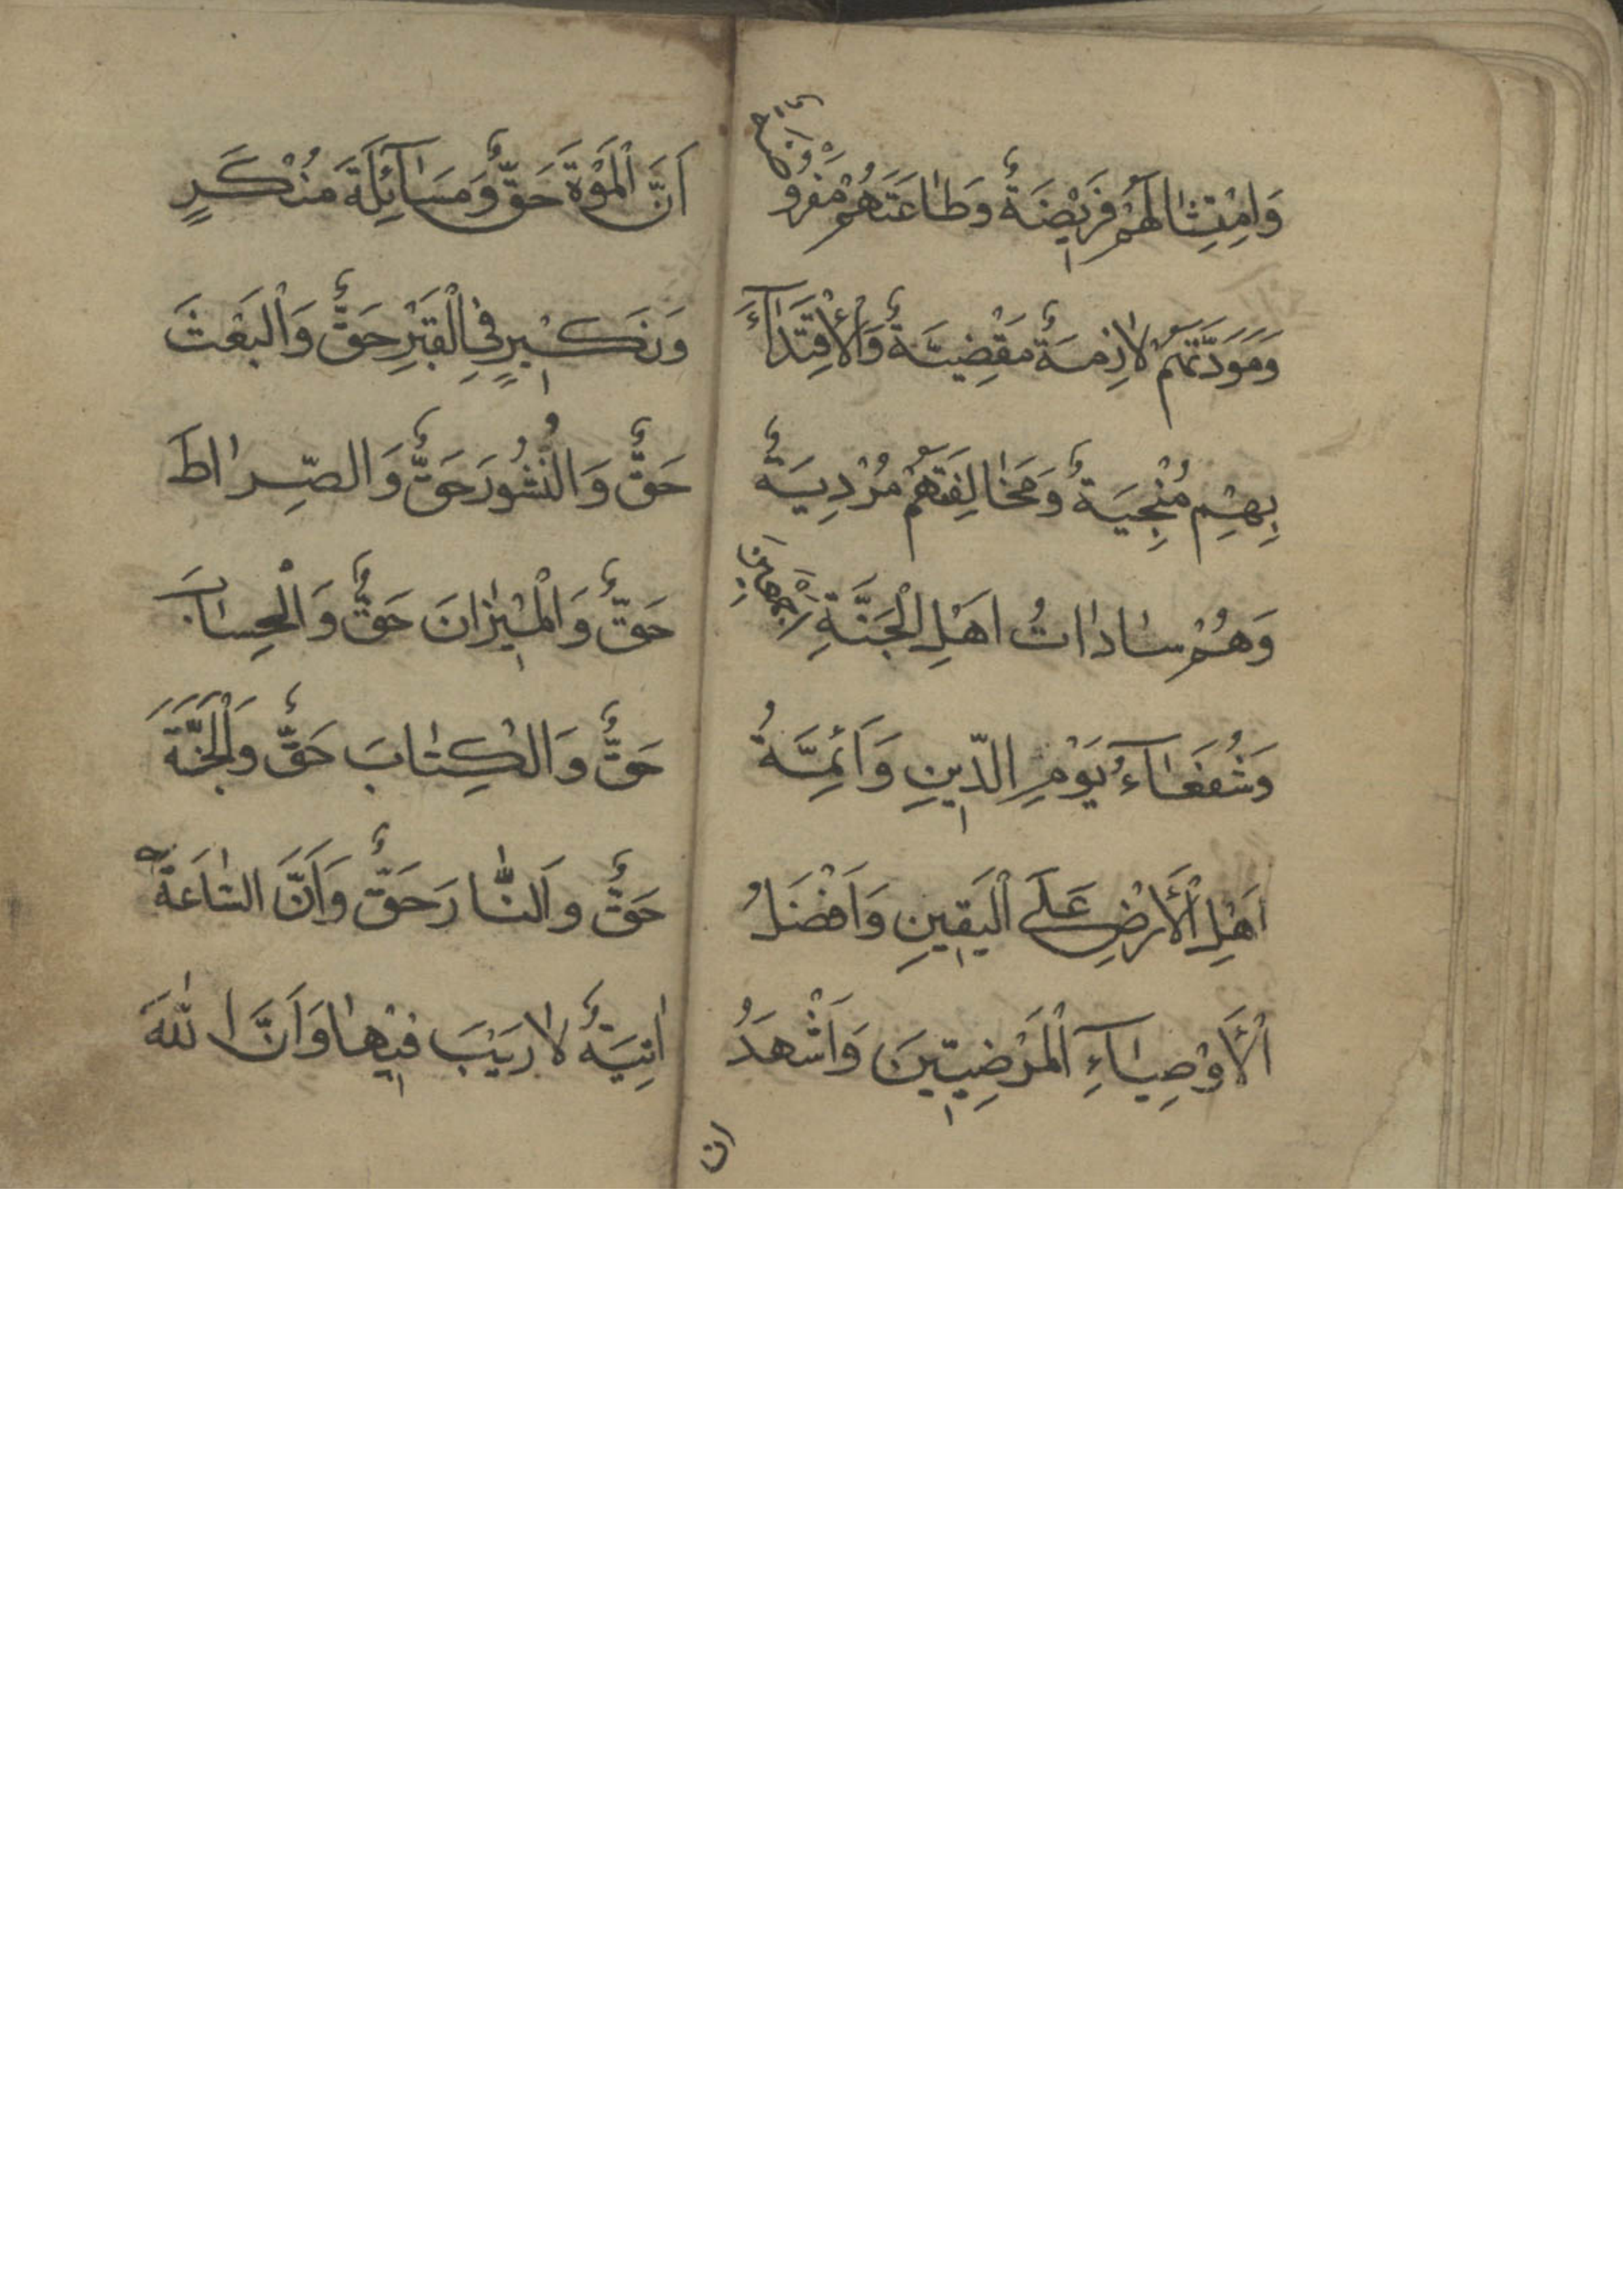 وَامْتِثٰالَهُمْ فَرِيْضَةٌ وَطٰاعَتَهُمْ مَفْرُوضَةٌ
وَمَوَدَّتَهُمْ لاٰزِمَةٌ مَقْضِيَّةٌ وَالْاِقْتِدٰآءَ
بِهِمْ مُنْجِيَةٌ وَمَخٰالِفَتَهُمْ مُرْدِيَةٌ
وَهُمْ سٰادٰاتُ اَهْلِ الْجَنَّةِ اَجْمَعِينَ
وَشُفَعٰآءُ يَوْمِ الدّينِ وَاَئِمَّةُ
اَهْلِ الْأَرْضِ عَلَى الْيَقينِ وَاَفْضَلُ
الْأَوْصِيٰآءِ الْمَرْضِيّينَ وَاَشْهَدُ
اَنَّ الْمَوْةَ حَقٌّ وَمَسٰآئِلَةَ مُنْكَرٍ
وَنَكيْرٍ فِي الْقَبْرِ حَقٌّ وَالْبَعْثَ
حَقٌّ وَالنُشُورَ حَقٌّ وَالصِّرٰاطَ
حَقٌّ وَالْميْزٰانَ حَقٌّ وَالْحِسٰابَ
حَقٌّ وَالْكِتٰابَ حَقٌّ وَالْجَنَّةَ
حَقٌّ وَالنّٰارَ حَقٌّ وَاَنَّ السّٰاعَةَ
اٰتِيَةٌ لاٰ رَيْبَ فيْهٰا وَاَنَّ اللّٰهَ
ان